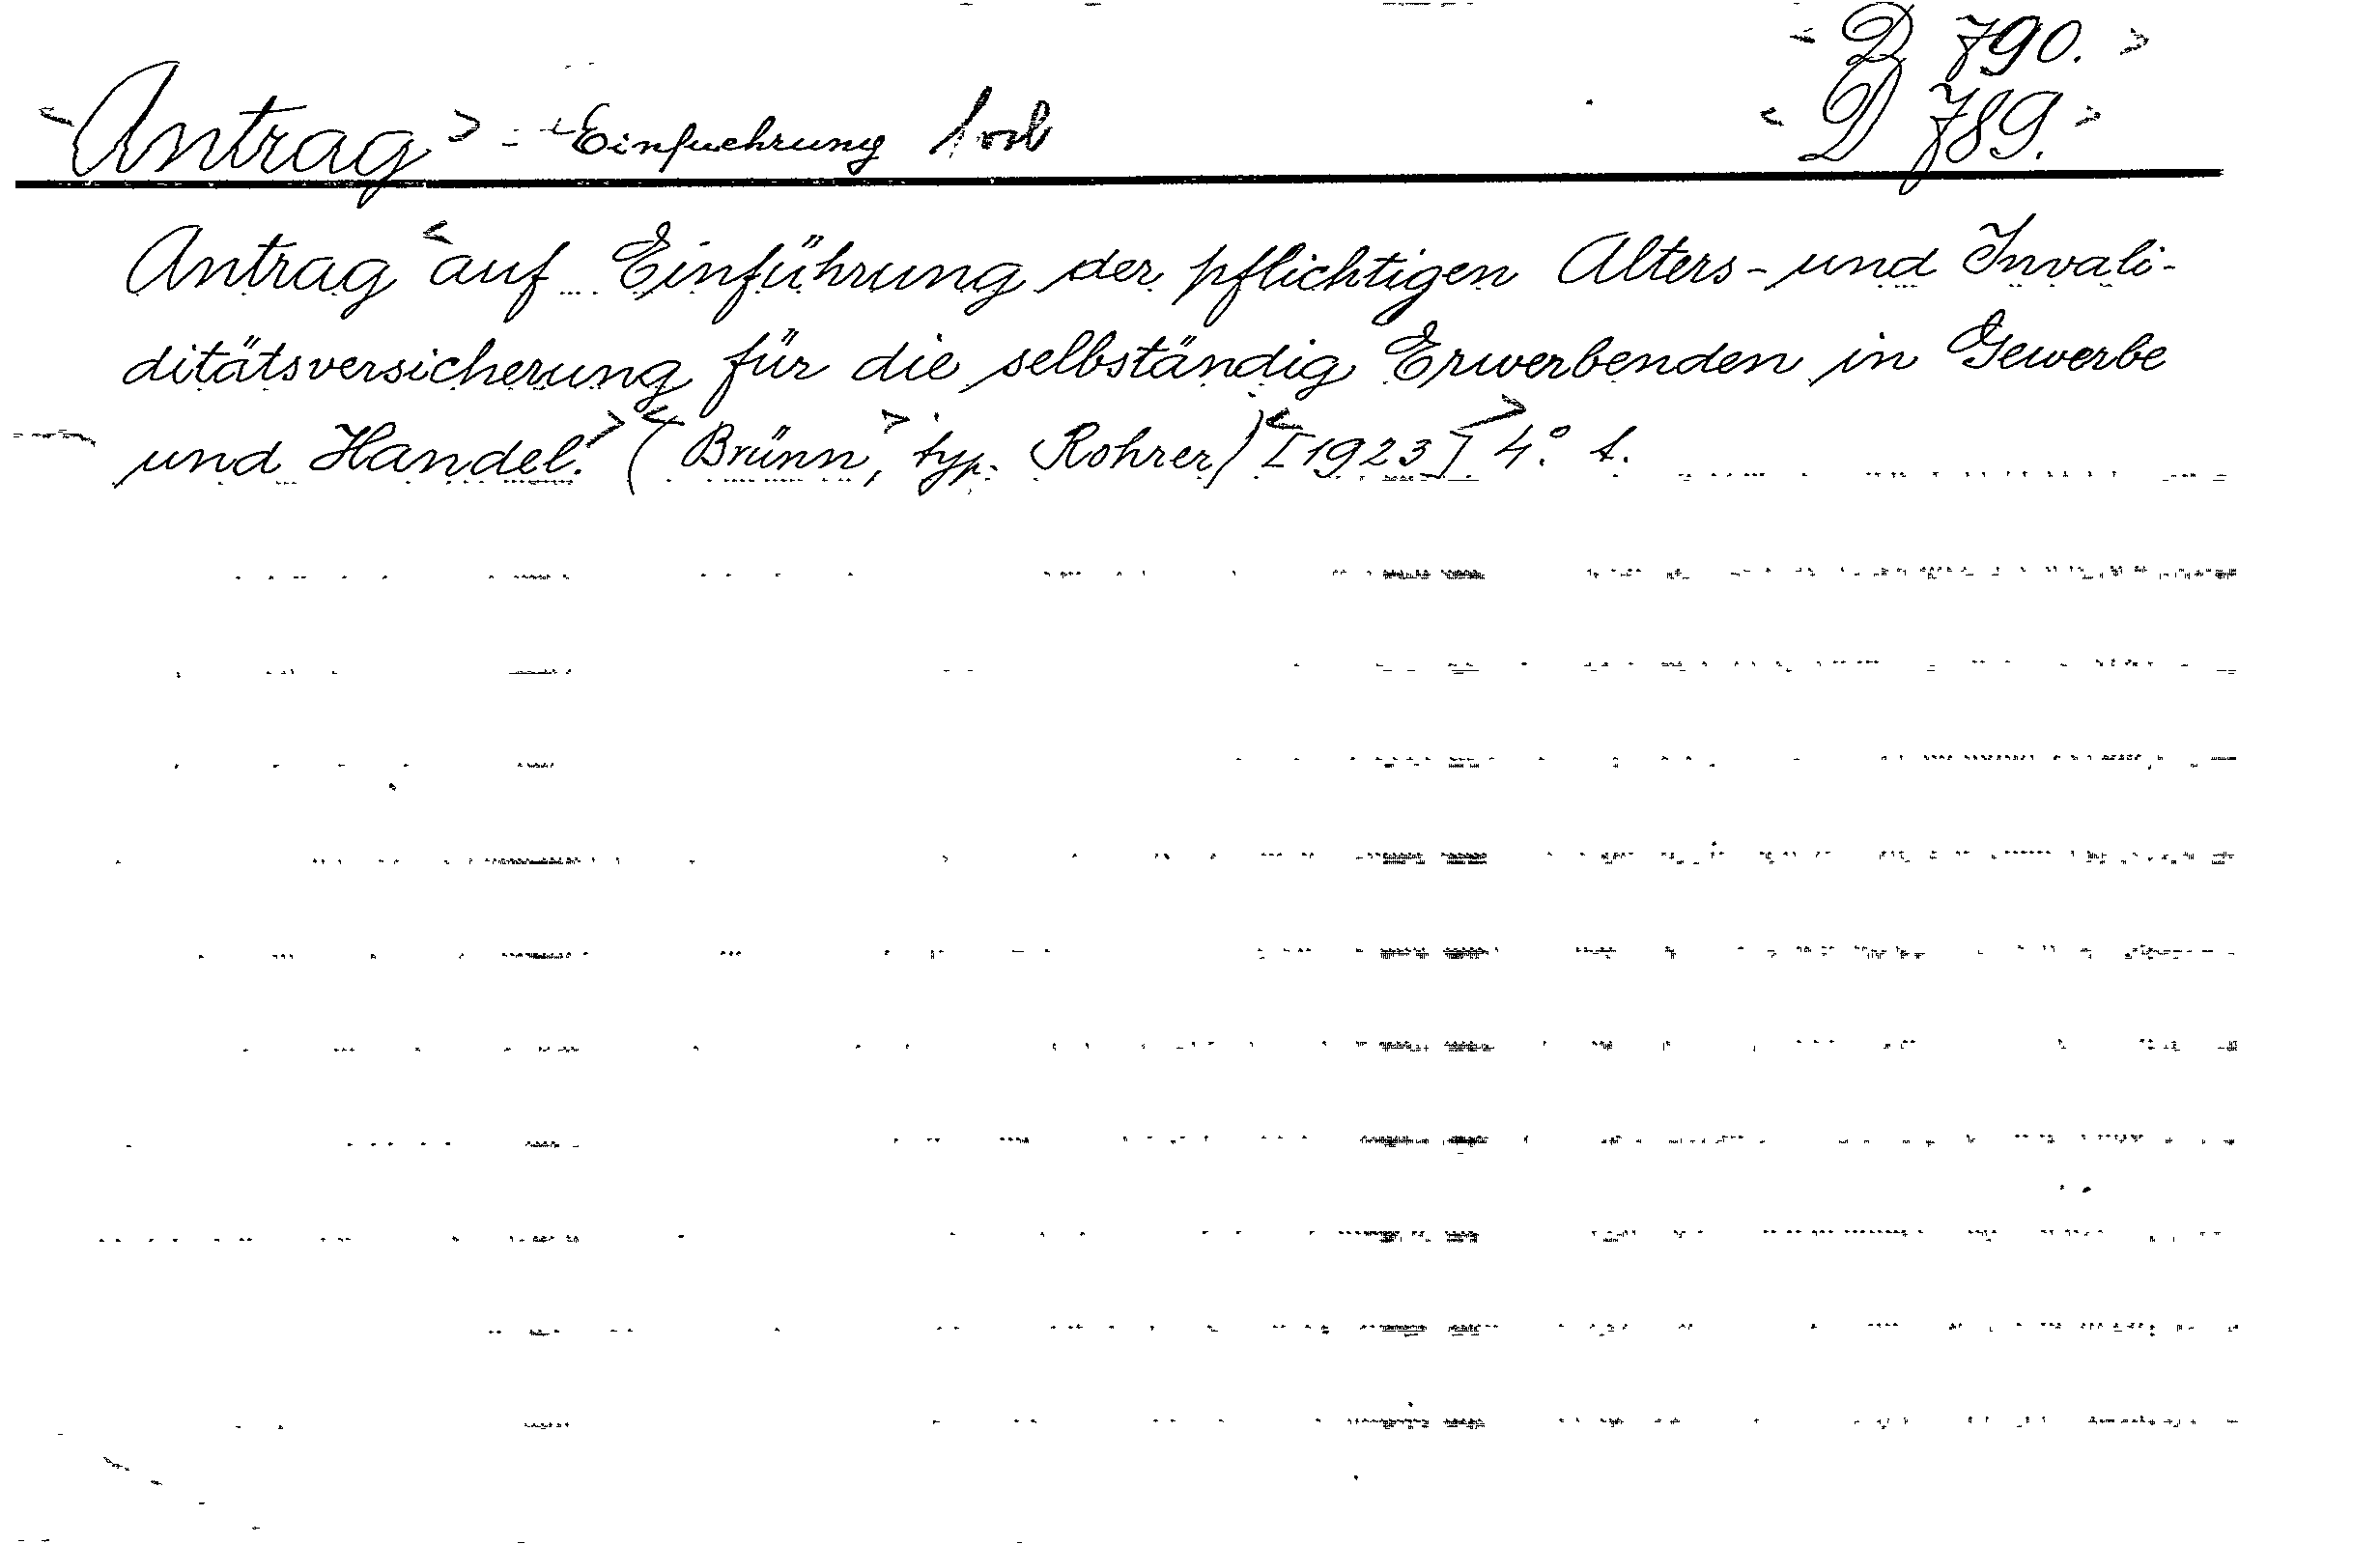 < D 790. >
<Antrag> - Einfuehrung < D 789. >
Antrag <auf Einführung der pflichtigen Alters- und Invali-
ditätsversicherung für die selbständig Erwerbenden in Gewerbe
und Handel.> <(Brünn>, typ. Rohrer) <[1923]> 4° 1.